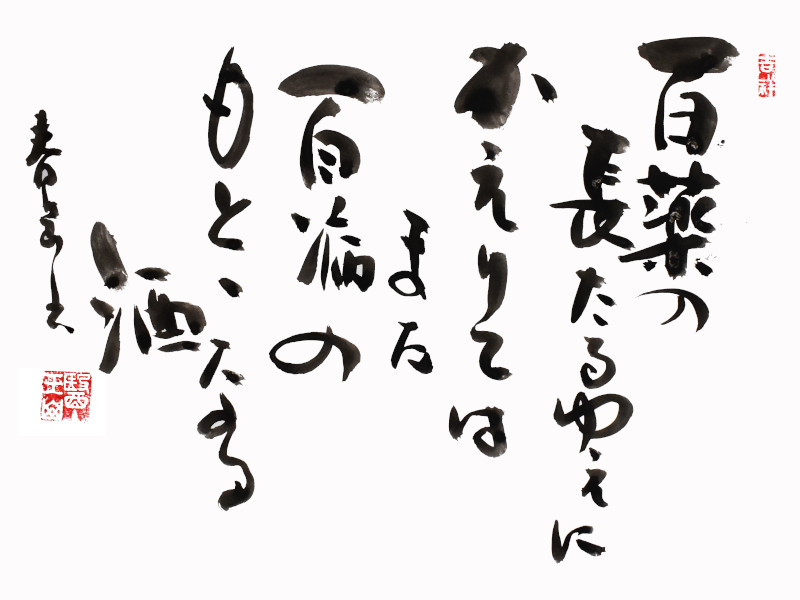 吉祥
百薬の
長たるゆえに
かえりては
また
百病の
もと、なる
酒